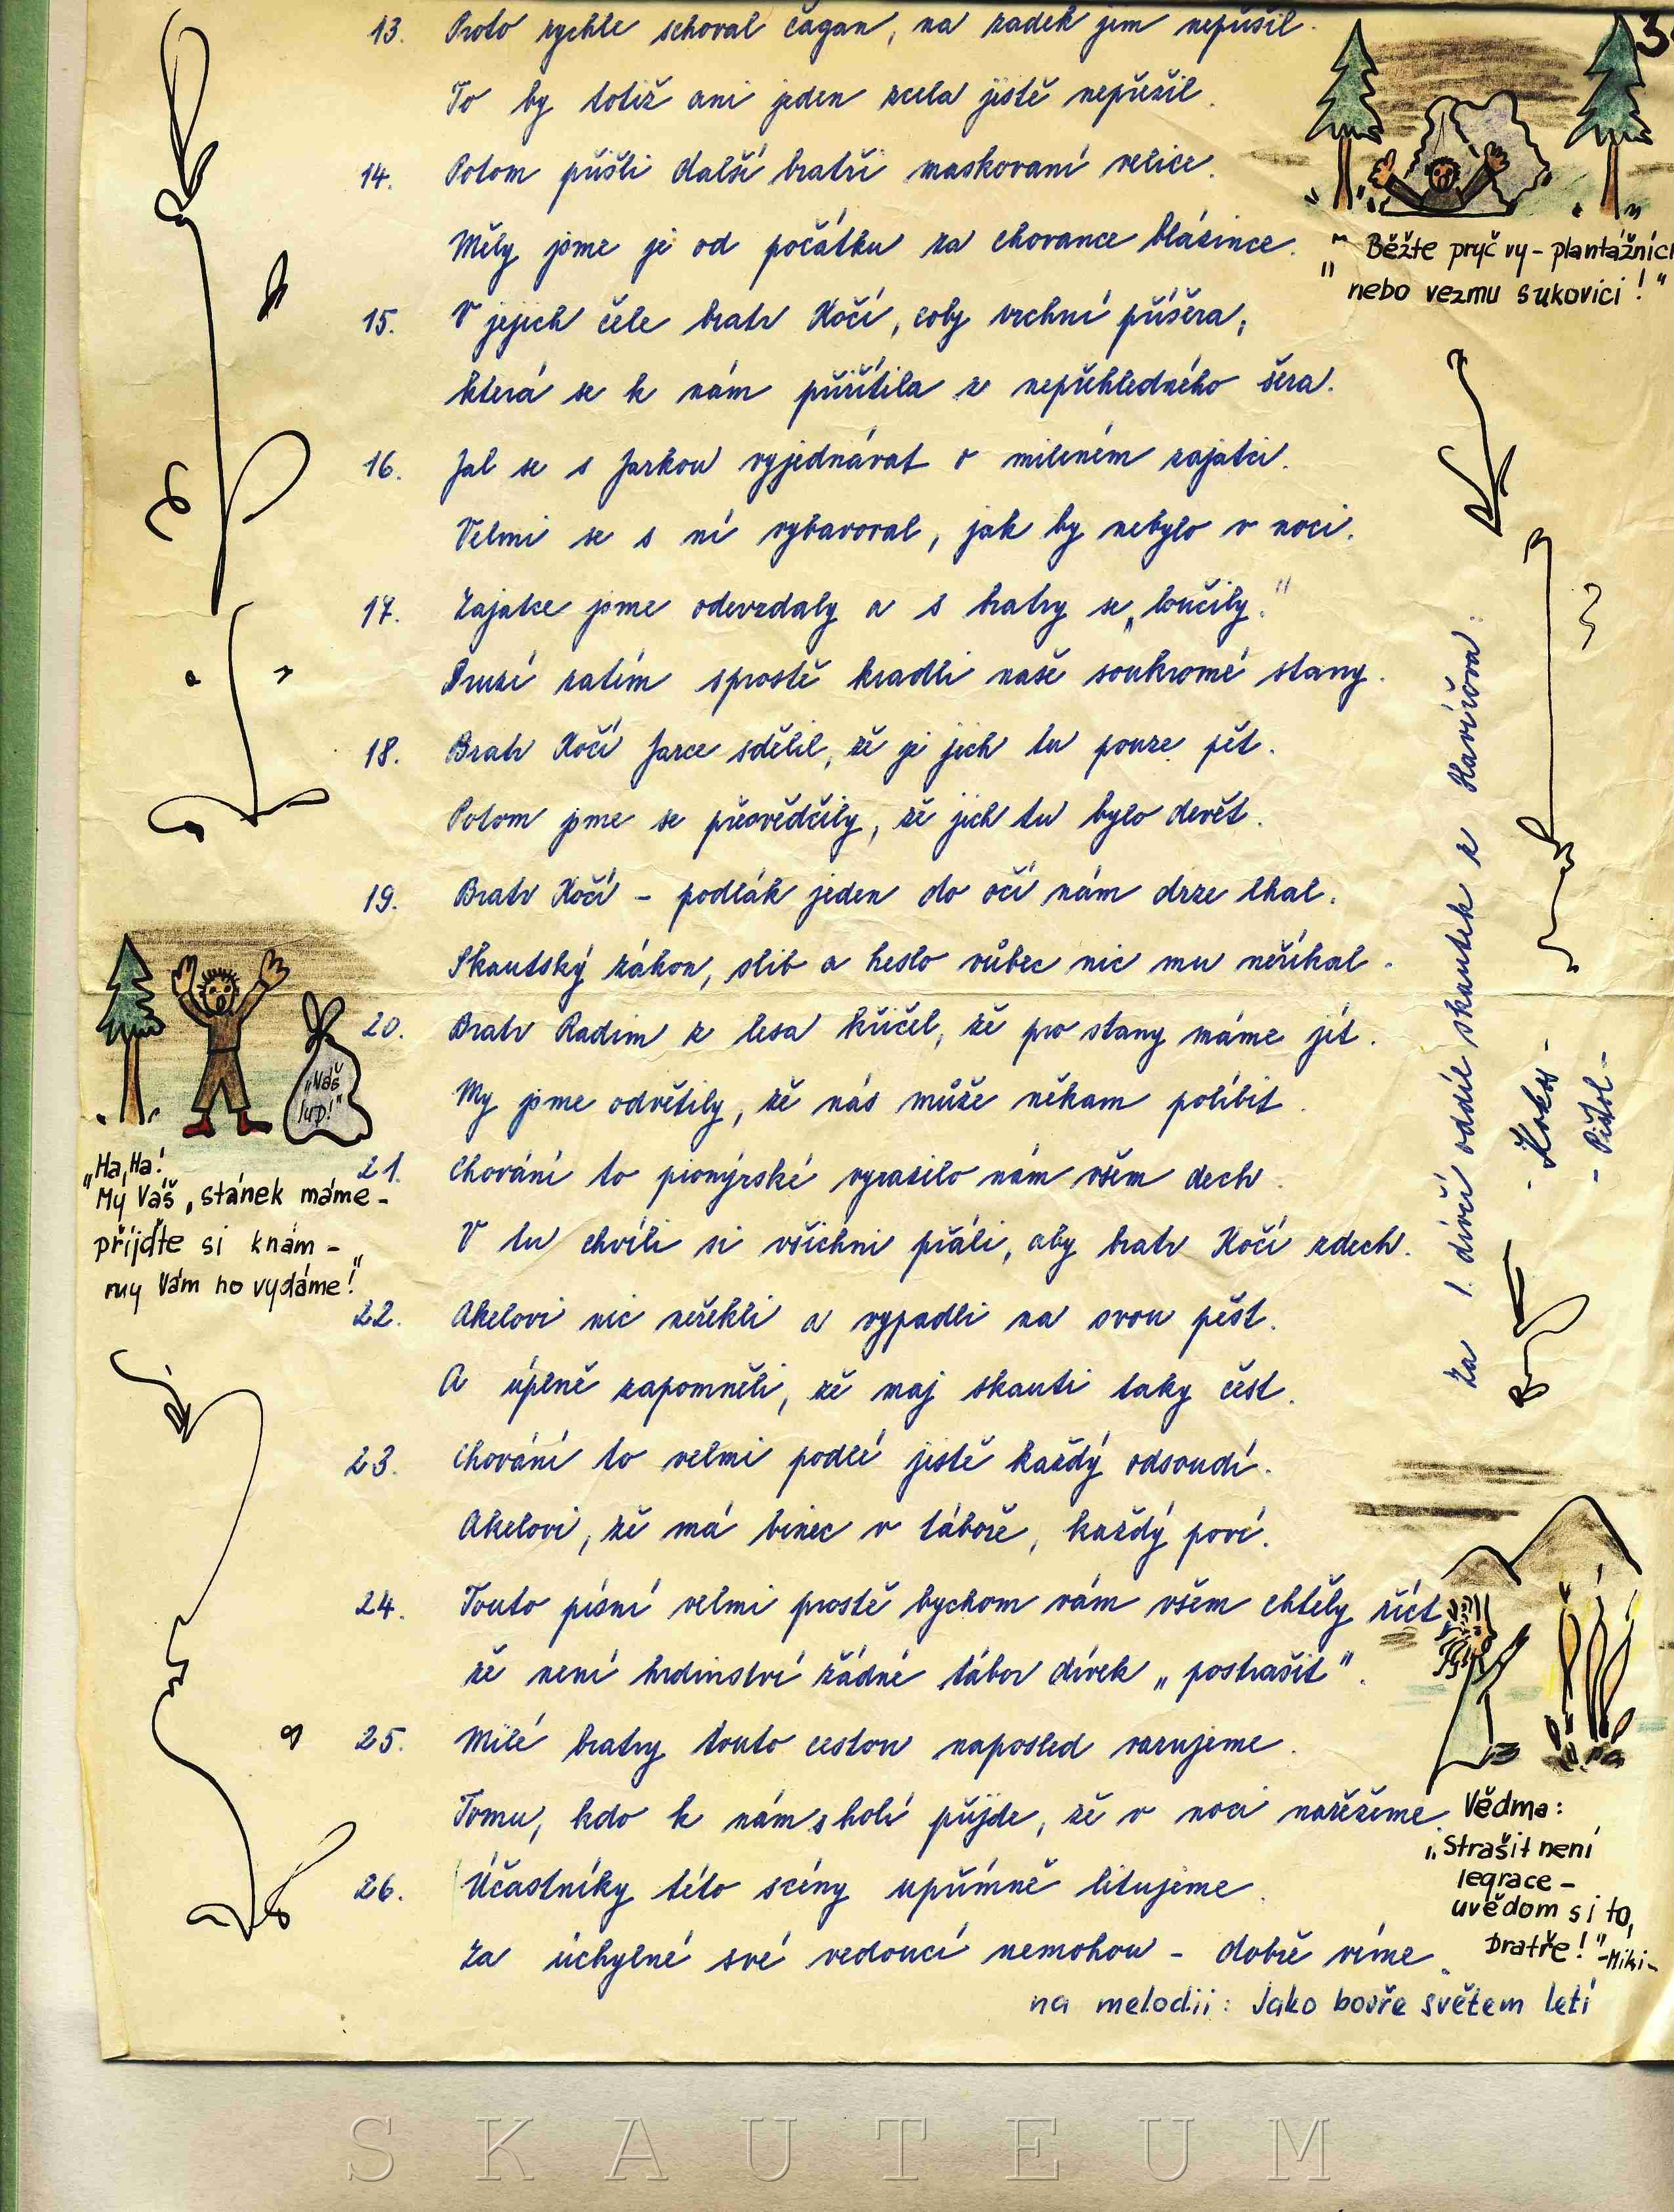 3
13. Proto rychle schoval čagan, na zadek jem nepřišil.
To by totiž ani jeden zcela jistě nepřežil.
14. Potom přišli další bratři maskovaní velice.
Měly jsme je od počátku za chovance blázince.
15. V jejich čele bratr Kočí, coby vrchní příšera,
která se k nám přiřítila z nepřehledného šera.
16. Jal se s Jarkou vyjednávat o mileném zajatci.
Velmi se s ní vybavoval, jak by nebylo v noci.
17. Zajatce jsme odevzdaly a s bratry se „loučily."
Druzí zatím sprostě kradli naše soukromé stany.
18. Bratr Kočí Jarce sdělil, že je jich tu pouze pět.
Potom jsme se přesvědčily, že jich tu bylo devět.
19. Bratr Kočí – podlák jeden do očí nám drze lhal.
Skautský zákon, slib a heslo vůbec nic mu neříkal.
20. Bratr Radim z lesa křičel, že pro stany máme jít.
My jsme odvětily, že nás může někam políbit.
21. Chování to pionýrské vyrazilo nám všem dech.
V tu chvíli si všichni přáli, aby bratr Kočí zdech.
22. Akelovi nic neřekli a vypadli na svou pěst.
A úplně zapomněli, že maj skauti taky čest.
23. Chování to velmi podlé jistě každý odsoudí.
Akelovi, že má binec v táboře, každý poví.
24. Touto písní velmi prostě bychom vám všem chtěly říct
že není hrdinství žádné tábor dívek „postrašit".
25. Milé bratry touto cestou naposled varujeme.
Tomu, kdo k nám s holí přijde, že v noci nařežeme.
26. Účastníky této scény upřímně litujeme.
Za úchylné své vedoucí nemohou – dobře víme.
na melodii: Jako bouře světem letí
„Běžte pryč vy – plantážníci
nebo vezmu sukovici!"
„Váš
lup!"
„Ha, Ha!
My Váš stánek máme –
přijďte si knám –
my Vám ho vydáme!"
Za 1. dívčí oddíl skautek z Havířova:
- Pištol -
Vědma:
„Strašit není
legrace –
uvědom si to,
bratře!"
-Miki-
SKAUTEUM